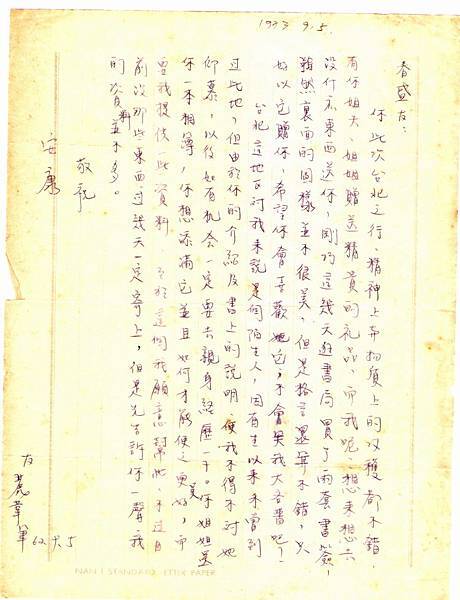 1973. 9.5.
春盛友：
你此次台北之行，精神上和物質上的收穫都不錯，
有你姐夫、姐姐贈送精貴的礼品，而我呢，想來想去
沒什么東西送你，剛巧這幾天逛書局買了兩套書簽，
雖然裏面的圖樣並不很美，但是格言還算不錯，只
好以它贈你，希望你會喜歡它，不會笑我太吝嗇吧！
台北這地方對我來說是個陌生人，因有生以來未曾到
过此地，但由於你的介紹及書上的說明，使我不得不对她
仰慕，以後如有机会一定要去親身経歷一下。你姐姐送
你一本相簿，你想添滿它並且如何才能使之更美好，而
要我提供此資料，至於這個我願意幫忙，不过目
前沒那些東西，过幾天一定寄上，但是先告訴你一聲，我
的資料並不多。
敬祝
安康
友
麗華筆
62.9.5
NAN I STANDARD LETTER PAPER